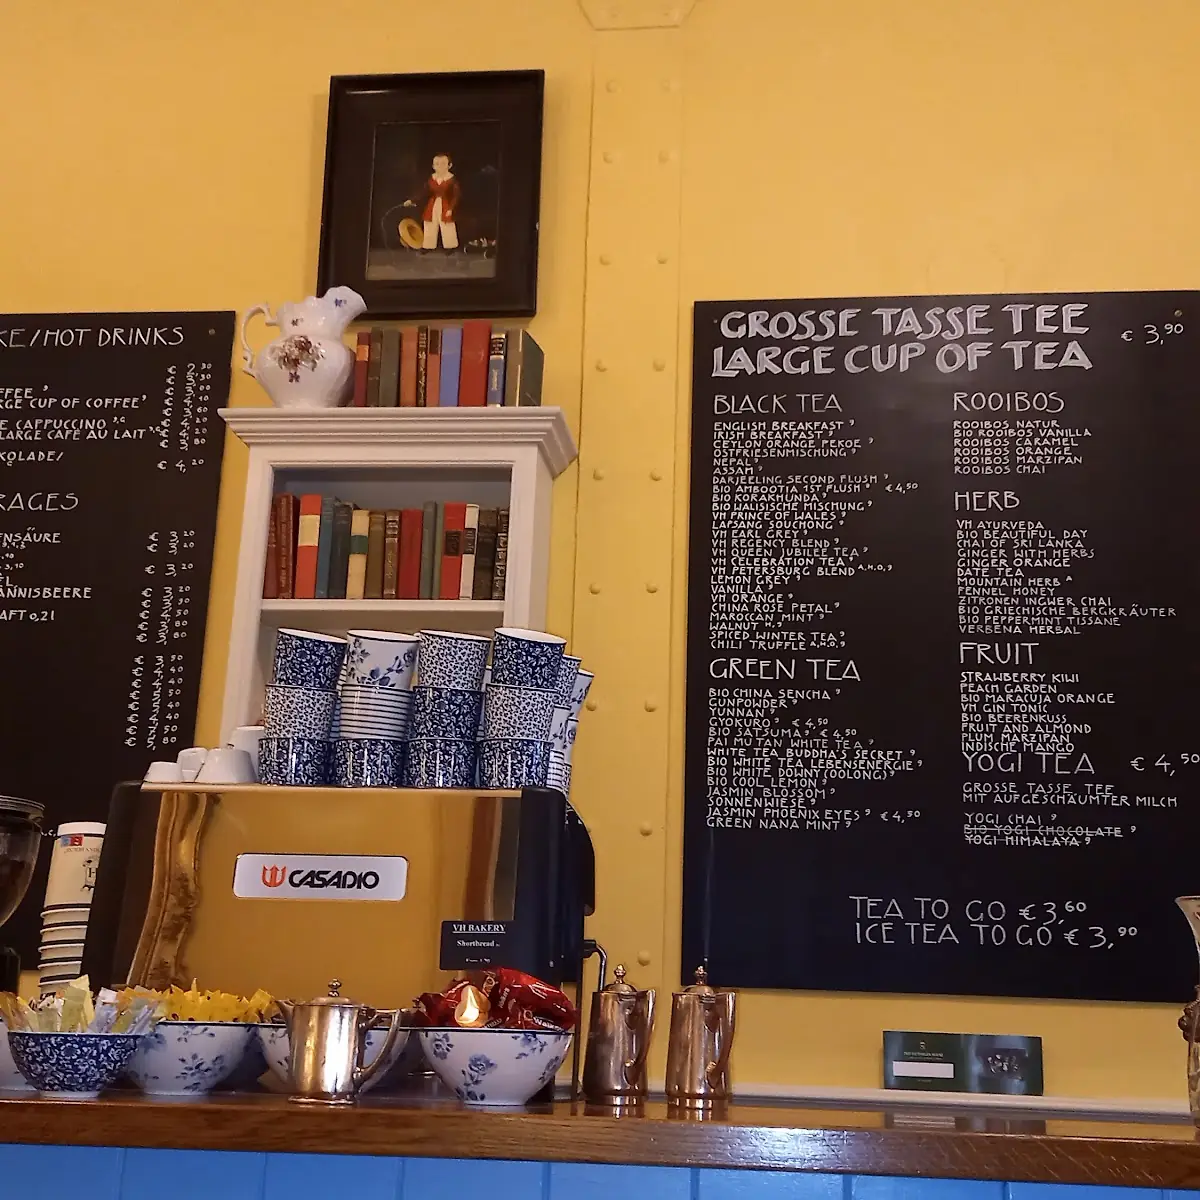 KE/HOT DRINKS
FFEE ⁹
RGE CUP OF COFFEE⁹
E CAPPUCCINO ⁹,ᴳ
LARGE CAFÉ AU LAIT ⁹,ᴳ
KOLADE/
€ 4,20
RAGES
ENSÄURE
€ 3,20
€ 3,20
ANNISBEERE
AFT 0,2l
GROSSE TASSE TEE
LARGE CUP OF TEA
€ 3,90
BLACK TEA
ENGLISH BREAKFAST ⁹
IRISH BREAKFAST ⁹
CEYLON ORANGE PEKOE ⁹
OSTFRIESENMISCHUNG ⁹
NEPAL ⁹
ASSAM ⁹
DARJEELING SECOND FLUSH ⁹
BIO AMBOOTIA 1ST FLUSH ⁹ € 4,50
BIO KORAKHUNDA ⁹
BIO WALISISCHE MISCHUNG ⁹
VH PRINCE OF WALES ⁹
LAPSANG SOUCHONG ⁹
VH EARL GREY ⁹
VH REGENCY BLEND ⁹
VH QUEEN JUBILEE TEA ⁹
VH CELEBRATION TEA ⁹
VH PETERSBURG BLEND ᴬ,ᴴ,ᴼ,⁹
LEMON GREY ⁹
VANILLA ⁹
VH ORANGE ⁹
CHINA ROSE PETAL ⁹
MAROCCAN MINT ⁹
WALNUT ᴴ,⁹
SPICED WINTER TEA ⁹
CHILI TRUFFLE ᴬ,ᴴ,ᴼ,⁹
GREEN TEA
BIO CHINA SENCHA ⁹
GUNPOWDER ⁹
YUNNAN ⁹
GYOKURO ⁹ € 4,50
BIO SATSUMA ⁹ € 4,50
PAI MU TAN WHITE TEA ⁹
WHITE TEA BUDDHA'S SECRET ⁹
BIO WHITE TEA LEBENSENERGIE ⁹
BIO WHITE DOWNY (OOLONG) ⁹
BIO COOL LEMON ⁹
JASMIN BLOSSOM ⁹
SONNENWIESE ⁹
JASMIN PHOENIX EYES ⁹ € 4,50
GREEN NANA MINT ⁹
ROOIBOS
ROOIBOS NATUR
BIO ROOIBOS VANILLA
ROOIBOS CARAMEL
ROOIBOS ORANGE
ROOIBOS MARZIPAN
ROOIBOS CHAI
HERB
VH AYURVEDA
BIO BEAUTIFUL DAY
CHAI OF SRI LANKA
GINGER WITH HERBS
GINGER ORANGE
DATE TEA
MOUNTAIN HERB ᴬ
FENNEL HONEY
ZITRONEN INGWER CHAI
BIO GRIECHISCHE BERGKRÄUTER
BIO PEPPERMINT TISSANE
VERBENA HERBAL
FRUIT
STRAWBERRY KIWI
PEACH GARDEN
BIO MARACUJA ORANGE
VH GIN TONIC
BIO BEERENKUSS
FRUIT AND ALMOND
PLUM MARZIPAN
INDISCHE MANGO
YOGI TEA € 4,50
GROSSE TASSE TEE
MIT AUFGESCHÄUMTER MILCH
YOGI CHAI ⁹
BIO YOGI CHOCOLATE ⁹
YOGI HIMALAYA ⁹
TEA TO GO € 3,60
ICE TEA TO GO € 3,90
CASADIO
VH BAKERY
Shortbread